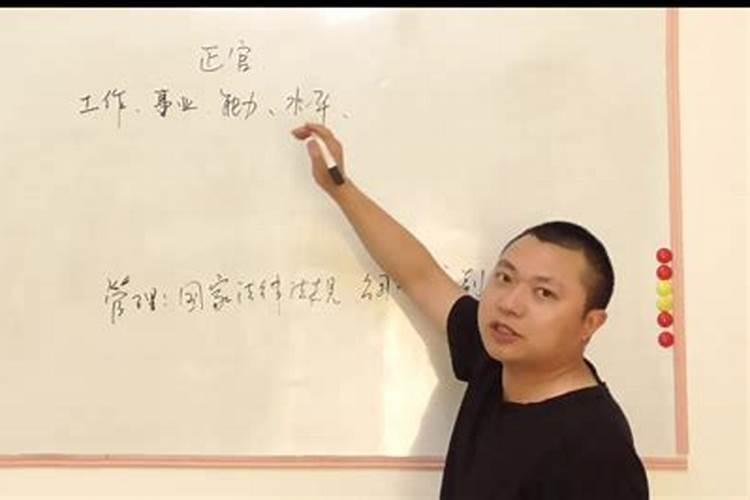 正官
工作、事业、能力、水平、
管理：国家法律法规 公司